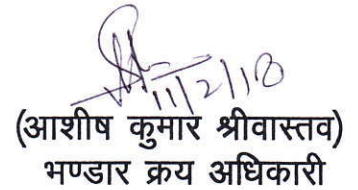 11/2/18
(आशीष कुमार श्रीवास्तव)
भण्डार क्रय अधिकारी